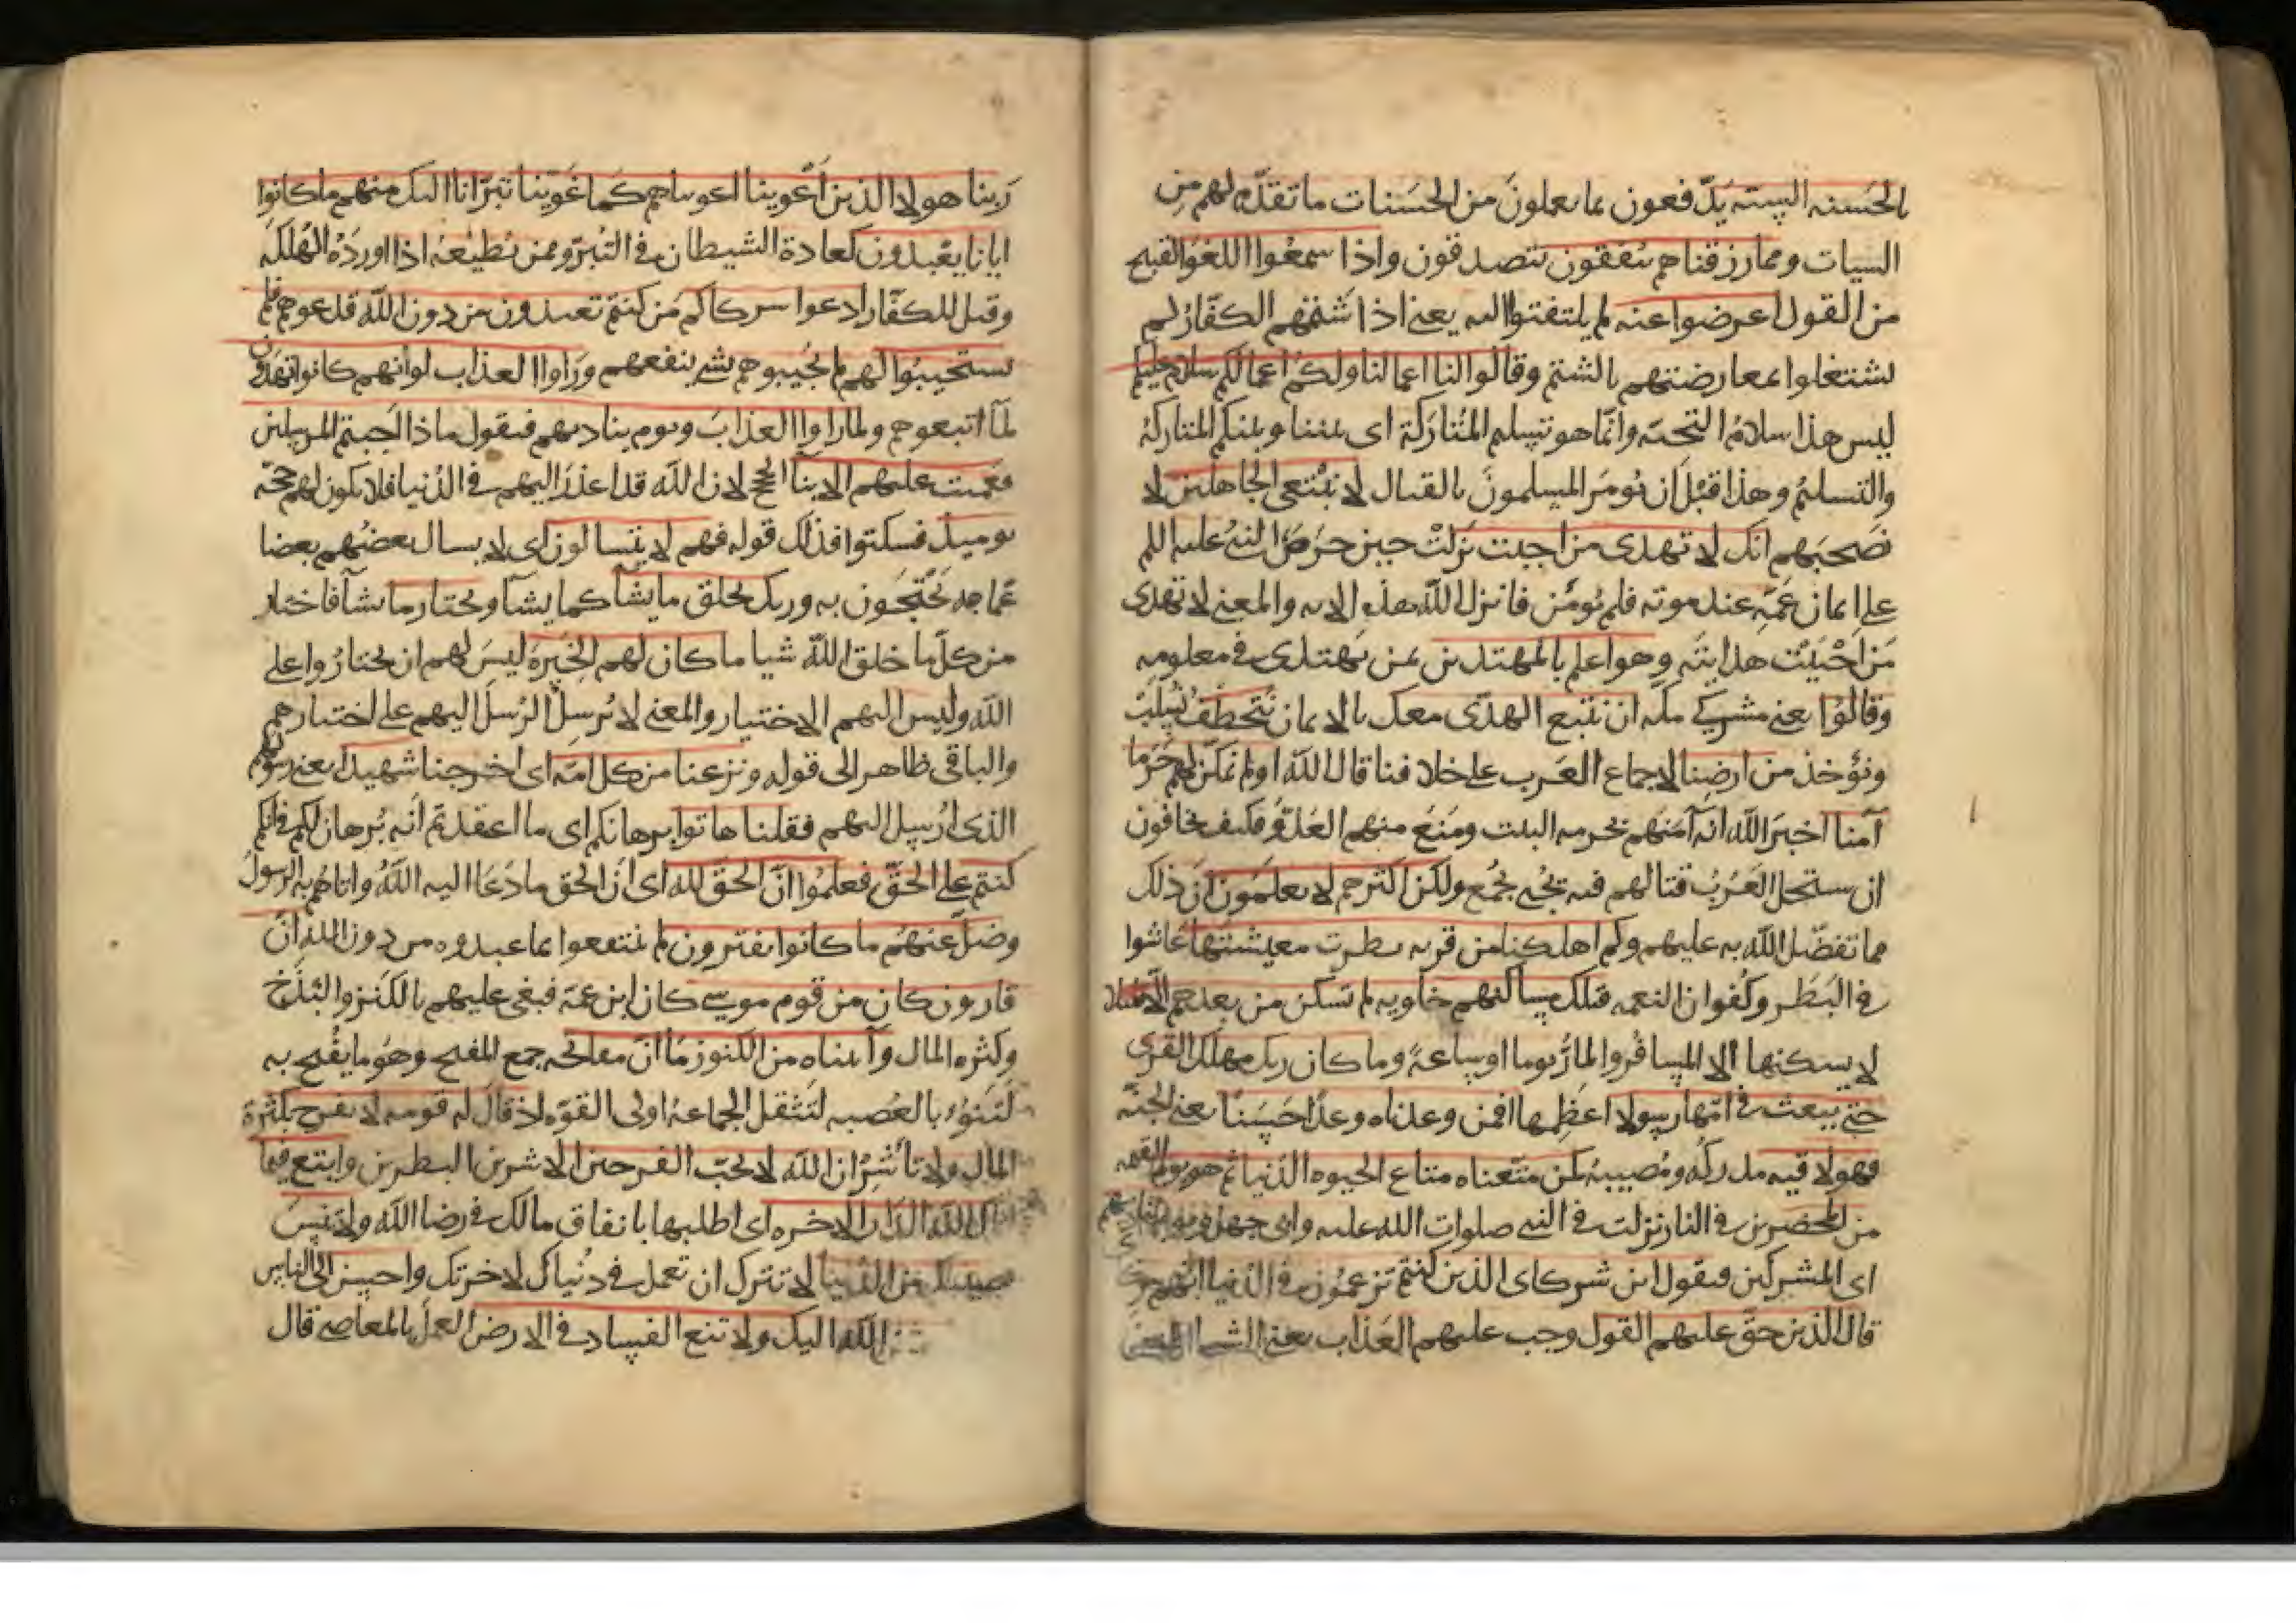 بالحسنه السيئه يدفعون بما يعملون من الحسنات ما تقدم لهم من
السيات ومما رزقناهم ينفقون يتصدقون واذا سمعوا اللغو القبيح
من القول اعرضوا عنه لم يلتفتوا اليه يعني اذا شتمهم الكفار لم
يشتغلوا بمعارضتهم بالشتم وقالوا لنا اعمالنا ولكم اعمالكم سلام عليكم
ليس هذا سلام التحية وانما هو تسليم المتاركة اي بيننا وبينكم المتاركة
والتسليم وهذا قبل ان يومر المسلمون بالقتال لا نبتغي الجاهلين لا
نصحبهم انك لا تهدى من احببت نزلت حين حرص النبي عليه السلم
على ايمان عمه عند موته فلم يؤمن فانزل الله هذه الايه والمعنى لا تهدى
من احببت هدايته وهو اعلم بالمهتدين بمن يهتدى في معلومه
وقالوا يعني مشركي مكه ان نتبع الهدى معك بالايمان نتخطف نسلب
ونؤخذ من ارضنا لاجماع العرب على خلافنا قال الله اولم نمكن لهم حرما
آمنا اخبر الله انه آمنهم بحرمه البيت ومنع منهم العدو فكيف يخافون
ان يستحل العرب قتالهم فيه يجبى يجمع ولكن اكثرهم لا يعلمون ان ذلك
مما تفضل الله به عليهم وكم اهلكنا من قريه بطرت معيشتها عاشوا
في البطر وكفران النعمه فتلك مساكنهم خاويه لم تسكن من بعدهم الا قليلا
لا يسكنها الا المسافر والمار يوما او ساعة وما كان ربك مهلك القرى
حتى يبعث في امها رسولا اعظمها افمن وعدناه وعدا حسنا يعني الجنة
فهو لاقيه مدركه ومصيبه كمن متعناه متاع الحيوه الدنيا ثم هو يوم القيمه
من المحضرين في النار نزلت في النبي صلوات الله عليه وابي جهل ويوم يناديهم
اى المشركين فيقول اين شركاى الذين كنتم تزعمون في الدنيا انهم
قال الذين حق عليهم القول وجب عليهم العذاب يعني
ربنا هولا الذين اغوينا اغويناهم كما غوينا تبرانا اليك منهم ما كانوا
ايانا يعبدون كعادة الشيطان في التبرو ممن يطيعه اذا اورده الهلكه
وقيل للكفار ادعوا شركاكم من كنتم تعبدون من دون الله فدعوهم فلم
يستجيبوا لهم لم يجيبوهم بشي ينفعهم وراوا العذاب لو انهم كانوا يهتدون
لما اتبعوهم ولما راوا العذاب ويوم يناديهم فيقول ماذا اجبتم المرسلين
فعميت عليهم الانبآ الحجج لان الله قد اعذر اليهم في الدنيا فلا يكون لهم حجة
يوميذ فسكتوا فذلك قوله فهم لا يتسالون اى لا يسال بعضهم بعضا
عما يحتجون به وربك يخلق ما يشآ كما يشآ ويختار ما يشآ فاختار
من كل ما خلق الله شيا ما كان لهم الخيرة ليس لهم ان يختاروا على
الله وليس اليهم الاختيار والمعنى لا نرسل الرسل اليهم على اختيارهم
والباقي ظاهر الى قوله ونزعنا من كل امة اى اخرجنا شهيدا يعني رسولهم
الذى ارسل اليهم فقلنا هاتوا برهانكم اى ما اعتقدتم انه برهان لكم في انكم
كنتم على الحق فعلموا ان الحق لله اى ان الحق ما دعا اليه الله واتاهم به الرسول
وضل عنهم ما كانوا يفترون لم ينتفعوا بما عبدوه من دون الله ان
قارون كان من قوم موسى كان ابن عمه فبغى عليهم بالكبر والبذخ
وكثره المال وآتيناه من الكنوز ما ان مفاتحه جمع المفتح وهو ما يفتح به
لتنوء بالعصبه لتثقل الجماعة اولى القوة اذ قال له قومه لا تفرح بكثرة
المال ولا تأشر ان الله لا يحب الفرحين الاشرين البطرين وابتغ فيما
اتاك الله الدار الاخره اى اطلبها بانفاق مالك في رضا الله ولا تنس
نصيبك من الدنيا لا تترك ان تعمل في دنياك لاخرتك واحسن الى الناس
الله اليك ولا تبغ الفساد في الارض العمل بالمعاصي قال